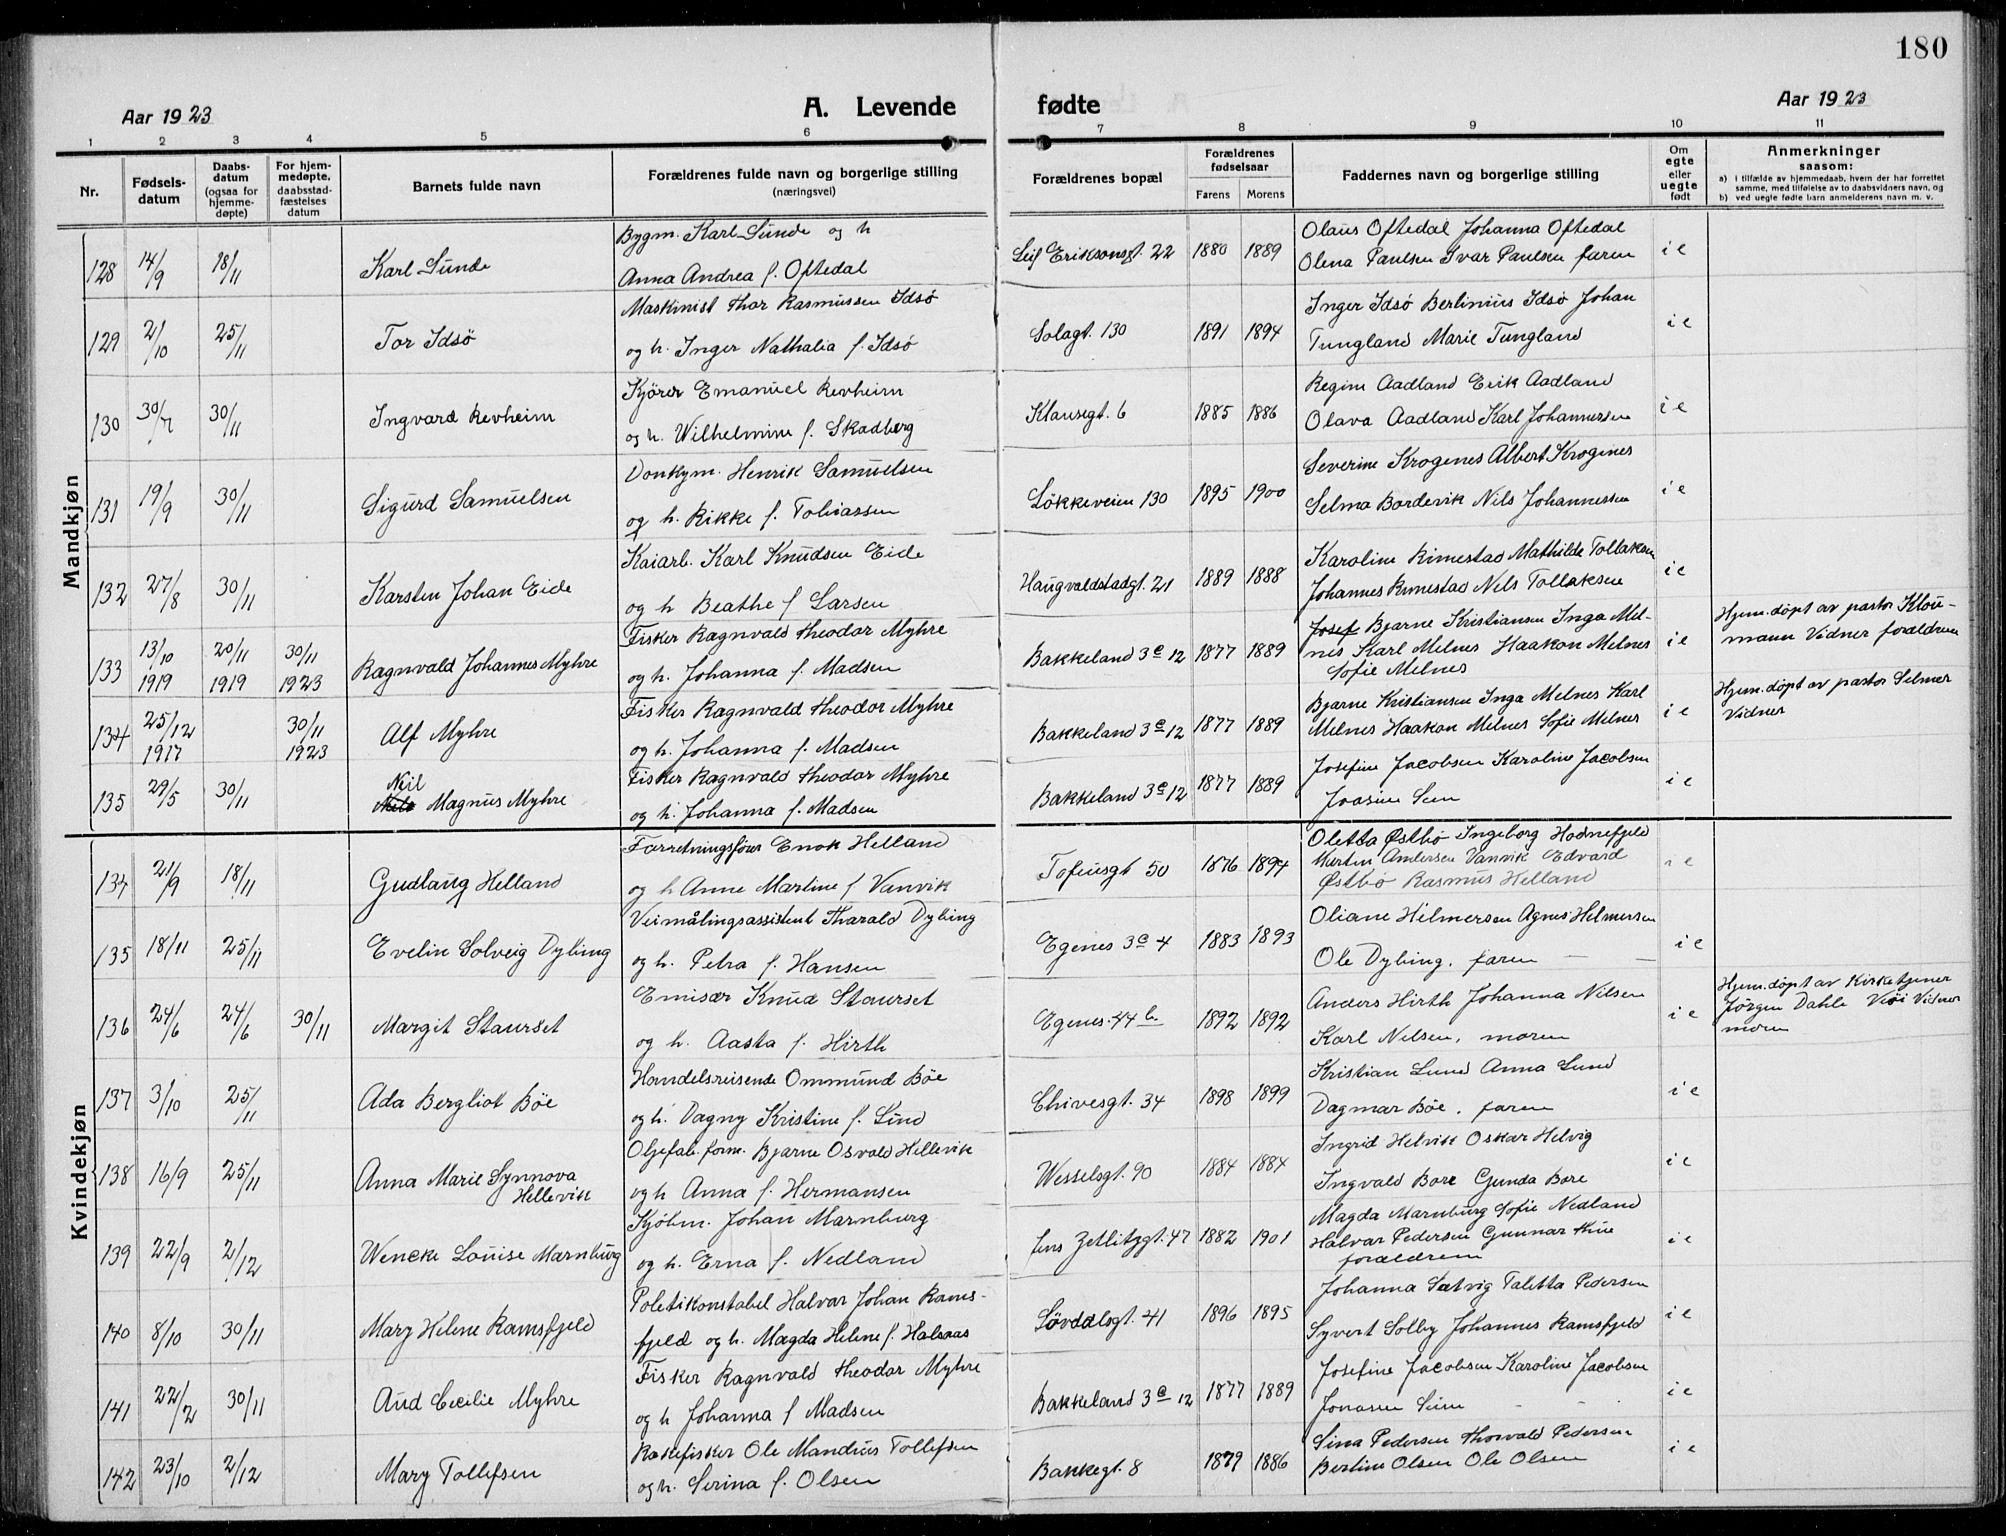 180
Aar 1923
A. Levende fødte
Aar 1923
1 2 3 4 5 6 7 8 9 10 11
Nr.
Fødsels-
datum
Daabs-
datum
(ogsaa for
hjemme-
døpte)
For hjem-
medøpte,
daabsstad-
fæstelses
datum
Barnets fulde navn
Forældrenes fulde navn og borgerlige stilling
(næringsvei)
Forældrenes bopæl
Forældrenes
fødselsaar
Farens Morens
Faddernes navn og borgerlige stilling
Om
egte
eller
uegte
født
Anmerkninger
saasom:
a) i tilfælde av hjemmedaab, hvem der har forrettet
samme, med tilføielse av to daabsvidners navn, og
b) ved uegte fødte barn anmelderens navn m. v.
Mandkjøn
128 14/9 18/11 Karl Sunde
Bygm. Karl Sunde og h
Anna Andrea f. Oftedal
Leif Eriksonsgt. 22 1880 1889
Olaus Oftedal Johanna Oftedal
Olena Paulsen Ivar Paulsen faren
i e
129 2/10 25/11 Tor Idsø
Maskinist Thor Rasmussen Idsø
og h. Inger Nathalia f. Idsø
Solagt. 130 1891 1894
Inger Idsø Berlinius Idsø Johan
Tungland Marie Tungland
i e
130 30/7 30/11 Ingvard Revheim
Kjører Emanuel Revheim
og h. Wilhelmine f. Skadberg
Klausegt. 6 1885 1886
Regine Aadland Erik Aadland
Olava Aadland Karl Johannessen
i e
131 19/9 30/11 Sigurd Samuelsen
Donkym. Henrik Samuelsen
og h. Rikke f. Tobiassen
Løkkeveien 130 1895 1900
Severine Krogenes Albert Krogenes
Selma Bordevik Nils Johannessen
i e
132 27/8 30/11 Karsten Johan Eide
Kaiarb. Karl Knudsen Eide
og h Beathe f. Larsen
Haugvaldstadgt. 21 1889 1888
Karoline Rimestad Mathilde Tollaksen
Johannes Rimestad Nils Tollaksen
i e
133 13/10 1919 20/11 1919 30/11 1923 Ragnvald Johannes Myhre
Fisker Ragnvald Theodor Myhre
og h. Johanna f. Madsen
Bakkeland 3e 12 1877 1889
Josef Bjarne Kristiansen Inga Mel-
nes Karl Melnes Haakon Melnes
Sofie Melnes
i e
Hjem.døpt av pastor Klou-
mann Vidner forældrene
134 25/12 1917 30/11 1923 Alf Myhre
Fisker Ragnvald Theodor Myhre
og h. Johanna f. Madsen
Bakkeland 3e 12 1877 1889
Bjarne Kristiansen Inga Melnes Karl
Melnes Haakon Melnes Sofie Melnes
i e
Hjem.døpt av pastor Selmer
Vidner
135 29/5 30/11 Neil
Nils Magnus Myhre
Fisker Ragnvald Theodor Myhre
og h. Johanna f. Madsen
Bakkeland 3e 12 1877 1889
Josefine Jacobsen Karoline Jacobsen
i e
Kvindekjøn
134 21/9 18/11 Gudlaug Helland
Forretningsfører Enok Helland
og h Anne Martine f Vanvik
Tofeusgt 50 1876 1894
Oletta Østbø Ingeborg Hodnefjeld
Martin Andersen Vanvik Edvard
Østbø Rasmus Helland
i e
135 18/11 25/11 Evelin Solveig Dybing
Veimålingsassistent Tharald Dybing
og h. Petra f. Hansen
Egenes 3e 4 1883 1893
Oliane Helmersen Agnes Helmersen
Ole Dybing, faren
i e
136 24/6 24/6 30/11 Margit Staurset
Emisær Knud Staurset
og h. Aasta f. Hirth
Egenes 44 b. 1892 1892
Anders Hirth Johanna Nilsen
Karl Nelsen, moren
i e
Hjem.døpt av Kirketjener
Jørgen Dahle Vidner
moren
137 3/10 25/11 Ada Bergliot Bøe
Handelsreisende Ommund Bøe
og h. Dagny Kristine f. Lund
Chivesgt. 34 1898 1899
Kristian Lund Anna Lund
Dagmar Bøe, faren
i e
138 16/9 25/11 Anna Marie Synnova
Hellevik
Oljefab. form. Bjarne Osvald Hellevik
og h Anna f. Hermansen
Wesselsgt. 90 1884 1884
Ingrid Helvik Oskar Helvig
Ingvald Bore Gunda Bore
i e
139 22/9 2/12 Wencke Louise Marnburg
Kjøbm. Johan Marnburg
og h. Erna f. Nedland
Jens Zetlitzgt. 47 1882 1901
Magda Marnburg Sofie Nedland
Halvar Pedersen Gunnar Thue
forældrene
i e
140 8/10 30/11 Mary Helene Ramsfjeld
Politikonstabel Halvar Johan Rams-
fjeld og h. Magda Helene f. Halsaas
Løvdalsgt. 41 1896 1895
Johanna Sætvig Taletta Pedersen
Syvert Solby Johannes Ramsfjeld
i e
141 22/2 30/11 Aud Cecilie Myhre
Fisker Ragnvald Theodor Myhre
og h Johanna f Madsen
Bakkeland 3e 12 1877 1889
Josefine Jacobsen Karoline Jacobsen
i e
142 23/10 2/12 Mary Tollefsen
Rækefisker Ole Mandius Tollefsen
og h. Serina f. Olsen
Bakkegt. 8 1879 1886
Sina Pedersen Thorvald Pedersen
Bertine Olsen Ole Olsen
i e